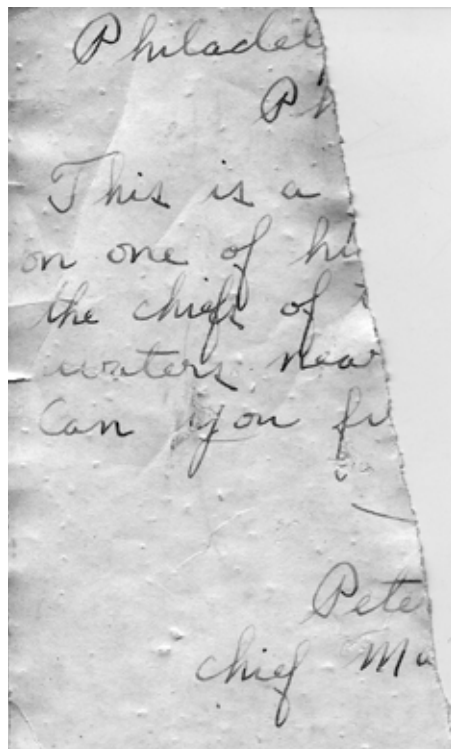 Philadel
Ph
This is a
on one of hi
the chiefs of t
waters near
Can you fi
Pete
chief Ma